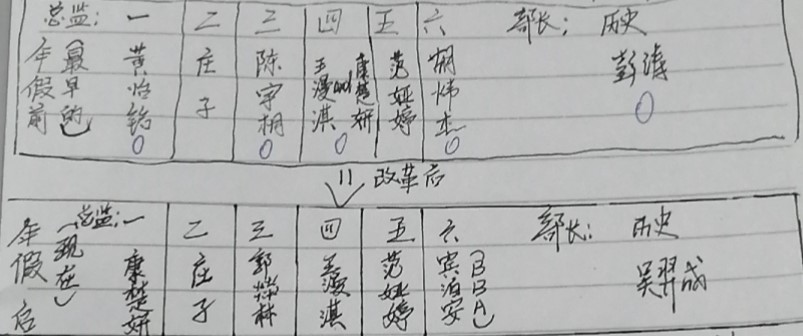 总监: 一 二 三 四 五 六 部长: 历史
年假前 (最早的) 黄怡铭 庄子 陈宇桐 王漫淇 and 康楚妍 范娅婷 胡炜杰 彭涛
改革后
总监: 一 二 三 四 五 六 部长: 历史
年假后 (现在) 康楚妍 庄子 郭烨林 王漫淇 范娅婷 宾泊安 (BBA) 吴羿成